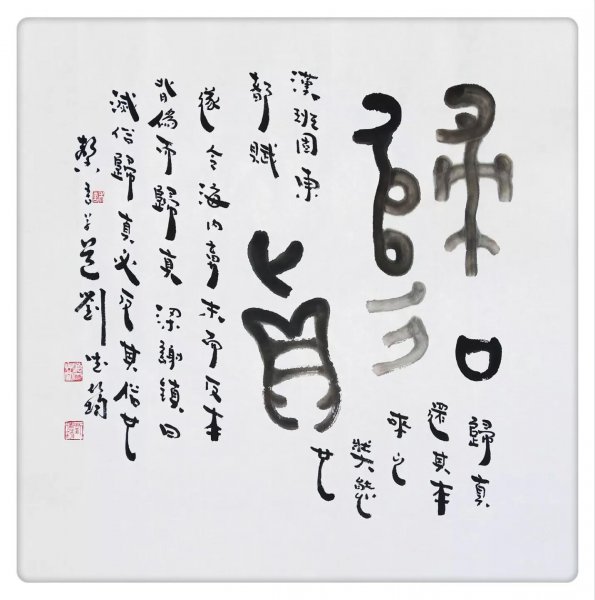 歸真
歸真
還其本
來之
狀態
也
漢班固東
都賦
遂令海內棄末而反本
背偽而歸真 梁謝鎮曰
滅俗歸真必反其俗也
劉